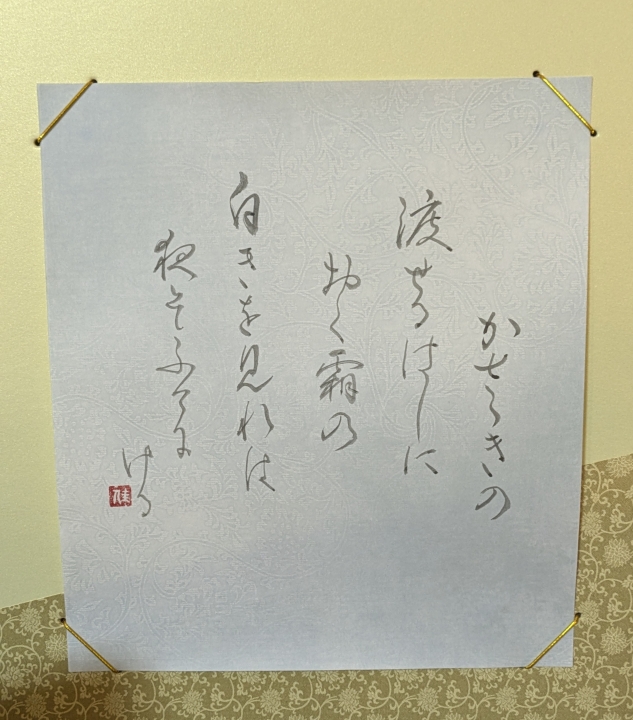 かさゝきの
渡せるはしに
おく霜の
白きを見れは
夜そふけに
ける
佳